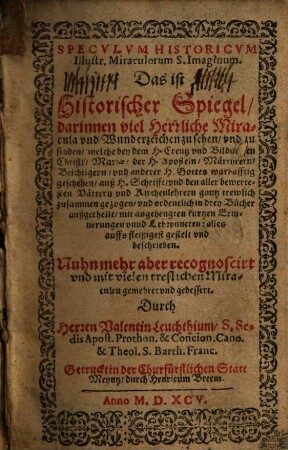 SPECVLVM HISTORICVM
Illustr. Miraculorum S. Imaginum.
Das ist
Historischer Spiegel /
darinnen viel Herrliche Mira-
cula vnd Wunderzeichen zu sehen / vnd zu
finden / welche bey den H. Creutz vnd Bildnissen
Christi / Mariæ, der H. Aposteln / Märtyrern /
Beichtigern / vnd anderer H. Gottes warhafftig
geschehen / auß H. Schrifft / vnd den aller bewerte-
sten Vättern vnd Kirchenlehrern gantz trewlich
zusammen gezogen / vnd ordenlich in drey Bücher
außgetheilt / mit angehengten kurtzen Erin-
nerungen vnnd Lehrpuncten: alles
auffs fleissigest gestelt vnd
beschrieben.
Nuhn mehr aber recognoscirt
vnd mit vielen trefflichen Mira-
culen gemehret vnd gebessert.
Durch
Herren Valentin Leuchthium / S. Se-
dis Apost. Prothon. & Concion. Cano.
& Theol. S. Barth. Franc.
Getruckt in der Churfürstlichen Statt
Meyntz / durch Henricum Breem.
Anno M. D. XCV.